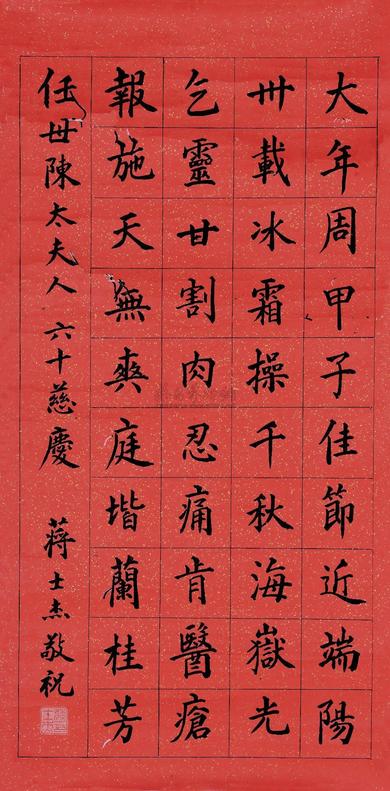 大年周甲子佳節近端陽
卅載冰霜操千秋海嶽光
乞靈甘割肉忍痛肯醫瘡
報施天無爽庭堦蘭桂芳
任母陳太夫人六十慈慶 蔣士杰敬祝